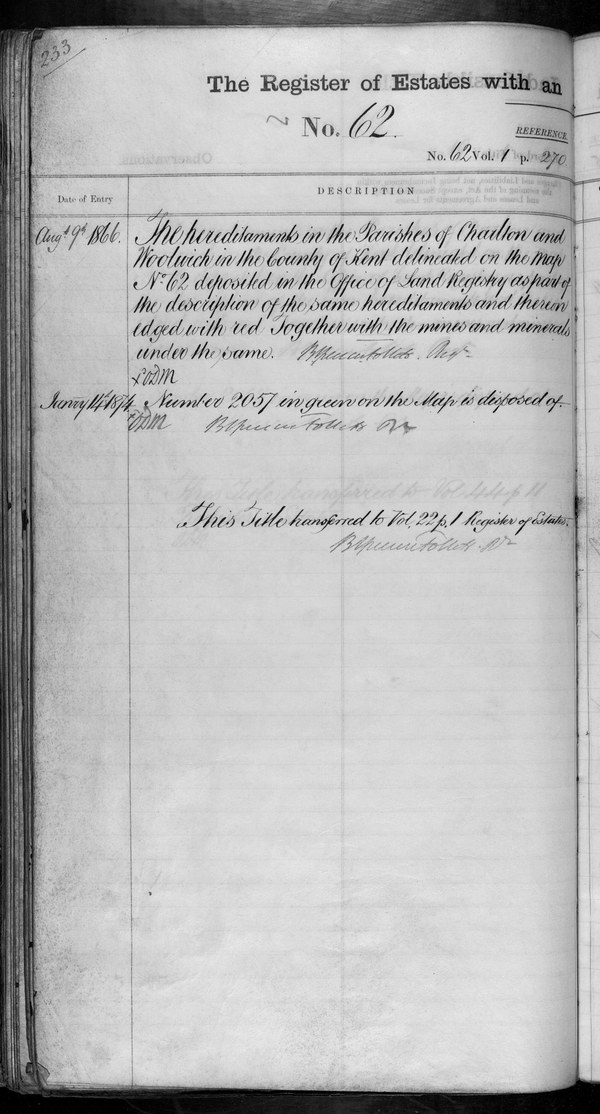 233
The Register of Estates with an
No. 62.
REFERENCE
No. 62 Vol. 1 p. 270
Observations
Date of Entry
DESCRIPTION
Augt 9th 1866. The hereditaments in the Parishes of Charlton and
Woolwich in the County of Kent delineated on the Map
No 62 deposited in the Office of Land Registry as part of
the description of the same hereditaments and therein
edged with red Together with the mines and minerals
under the same. Brent Spencer Follett. Regr
Janry 14th 1874. Number 2057 in green on the Map is disposed of.
This Title transferred to Vol. 44 p 11
This Title transferred to Vol. 22 p. 1 Register of Estates.